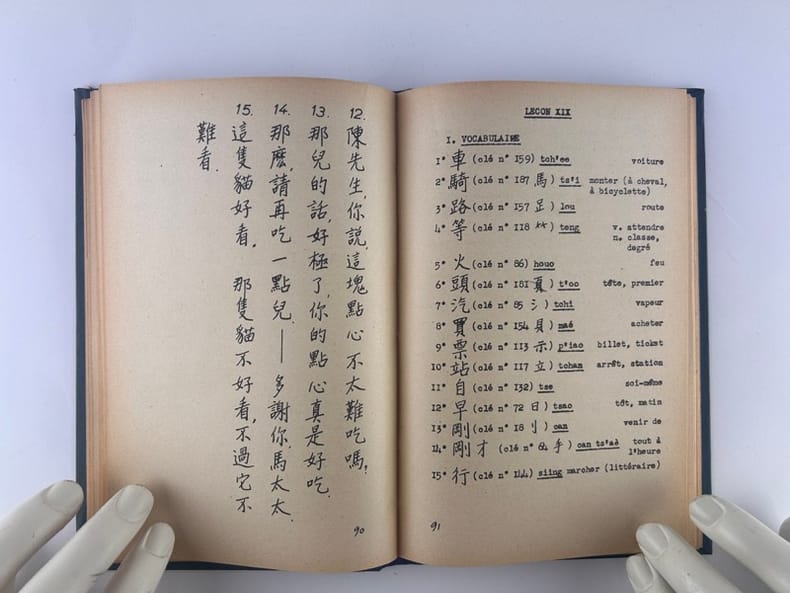 12. 陳先生,你說,這塊點心不太難吃嗎?
13. 那兒的話,好極了,你的點心真是好吃.
14. 那麽,請再吃一點兒.——多謝你,馬太太.
15. 這隻貓好看, 那隻貓不好看,不過它不
難看.
90
LECON XIX
I. VOCABULAIRE
1° 車 (clé n° 159) tch'ee voiture
2° 騎 (clé n° 187 馬) ts'i monter (à cheval,
à bicyclette)
3° 路 (clé n° 157 足) lou route
4° 等 (clé n° 118 ⺮) teng v. attendre
n. classe,
degré
5° 火 (clé n° 86) houo feu
6° 頭 (clé n° 181 頁) t'oo tête, premier
7° 汽 (clé n° 85 氵) tchi vapeur
8° 買 (clé n° 154 貝) maé acheter
9° 票 (clé n° 113 示) p'iao billet, ticket
10° 站 (clé n° 117 立) tchan arrêt, station
11° 自 (clé n° 132) tse soi-même
12° 早 (clé n° 72 日) tsao tôt, matin
13° 剛 (clé n° 18 刂) can venir de
14° 剛才 (clé n° 64 手) can ts'aè tout à
l'heure
15° 行 (clé n° 144) siing marcher (littéraire)
91